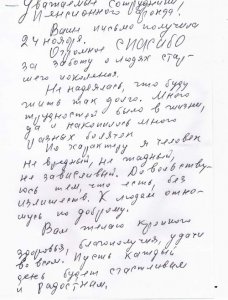 Уважаемые сотрудники
Пенсионного Фонда,
Ваше письмо получила
24 ноября.
Огромное СПАСИБО
за заботу о людях стар-
шего поколения.
Не надеялась, что буду
жить так долго. Много
трудностей было в жизни,
да и накопилось много
разных болячек
По характеру я человек
не вредный, не жадный,
не завистливый. Довольству-
юсь тем, что есть, без
излишеств. К людям отно-
шусь по доброму.
Вам желаю крепкого
здоровья, благополучия, удачи
во всем. Пусть каждый
день будет счастливым
и радостным.